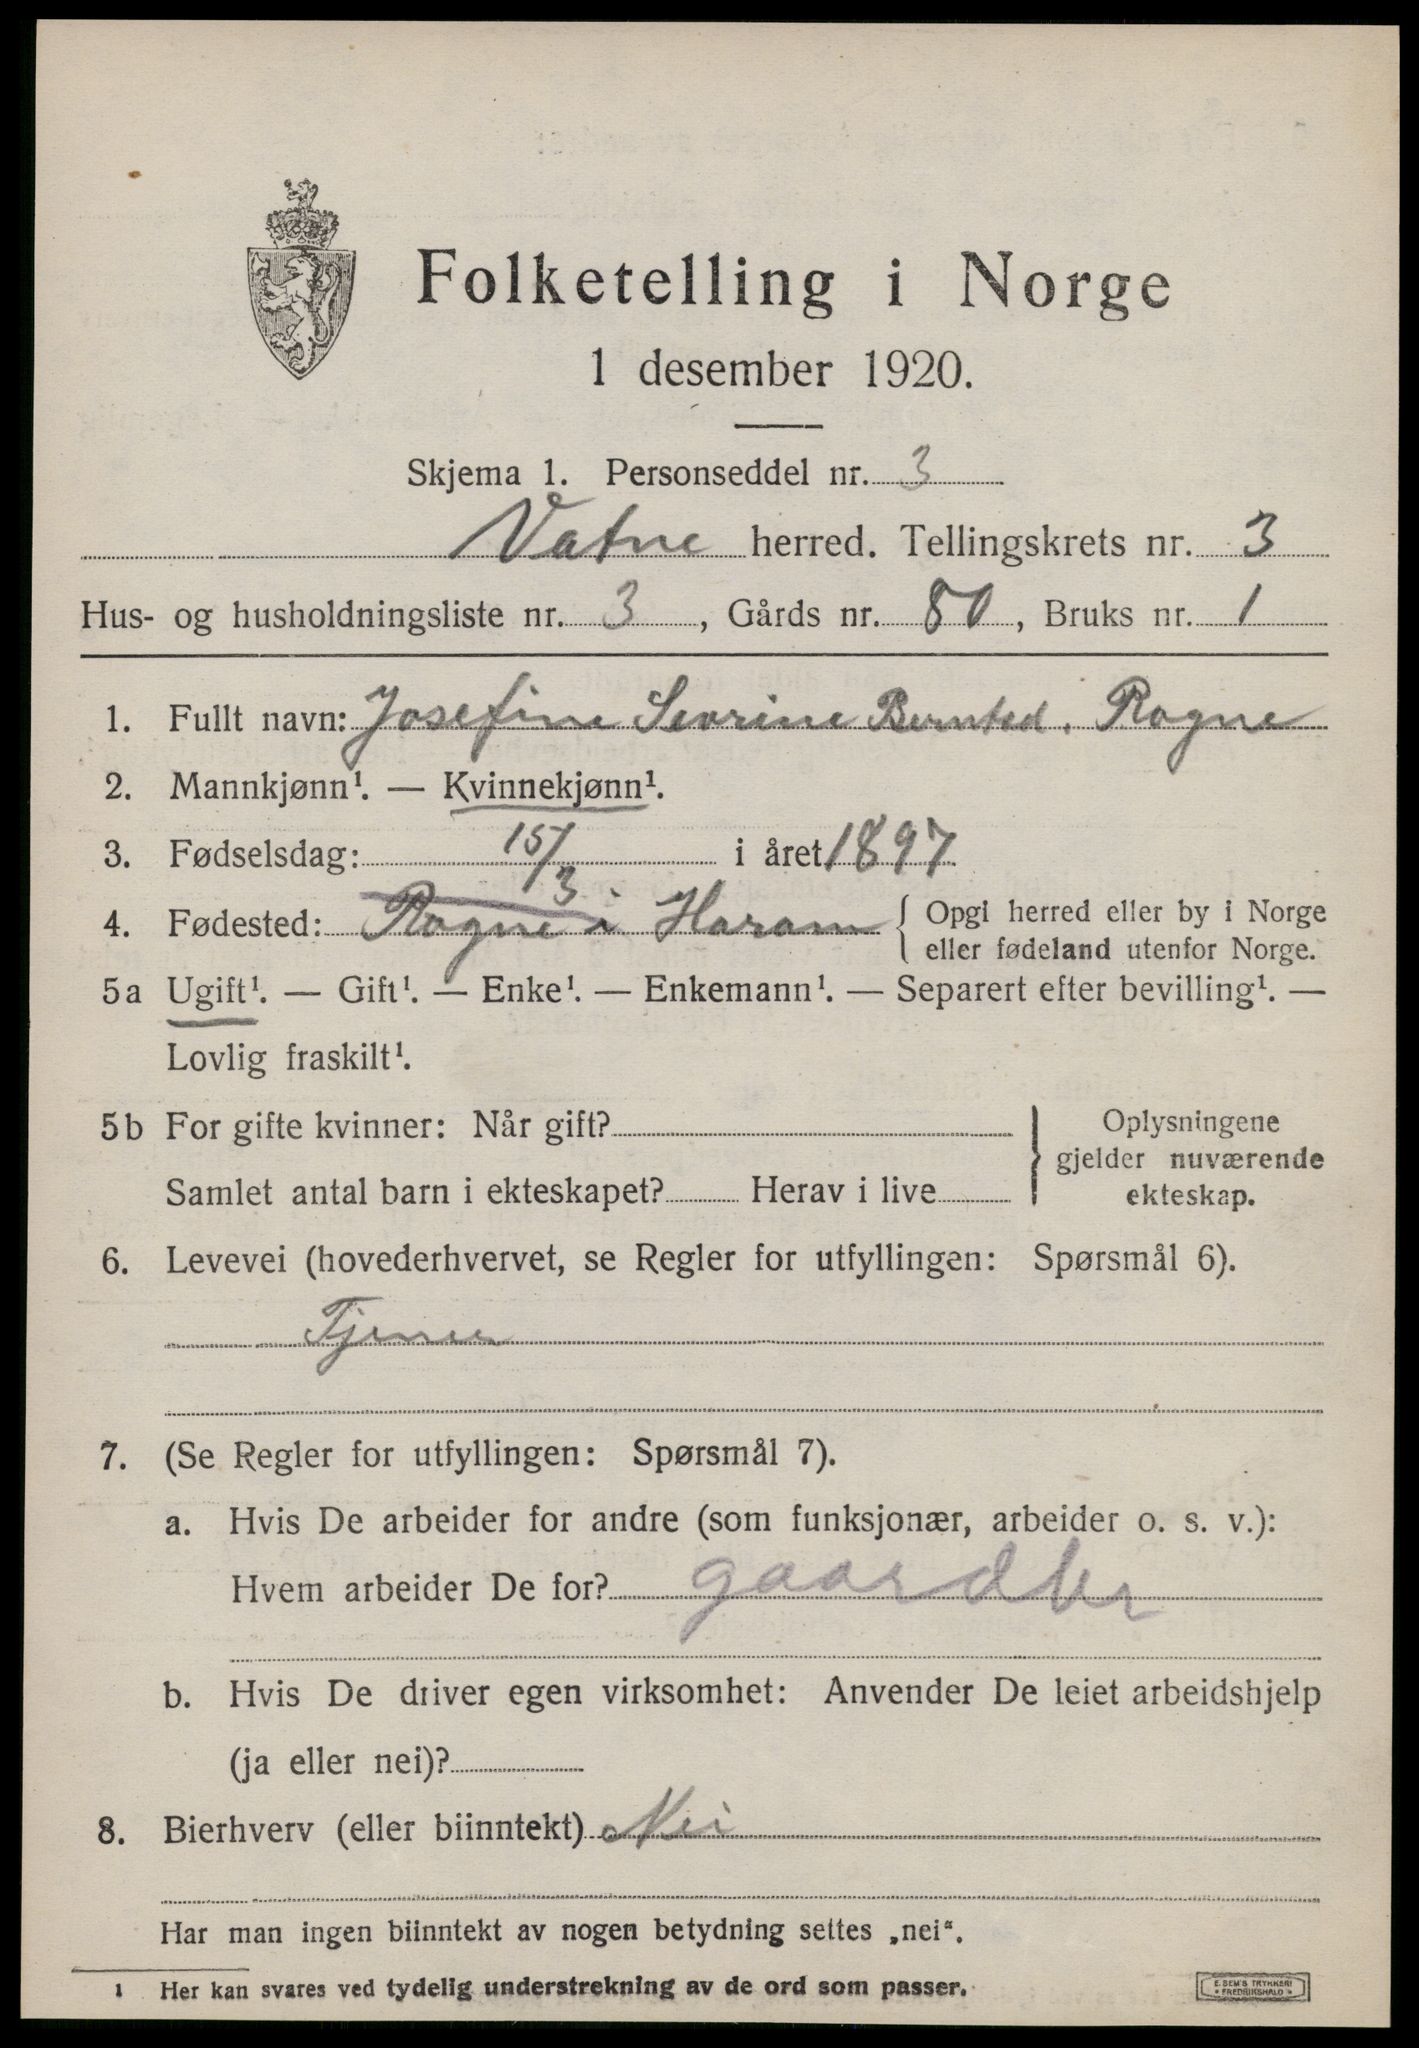 Folketelling i Norge
1 desember 1920.
Skjema 1. Personseddel nr. 3
Vatne herred. Tellingskrets nr. 3
Hus- og husholdningsliste nr. 3, Gårds nr. 80, Bruks nr. 1
1. Fullt navn: Josefine Sevrine Berntsd. Rogne
2. Mannkjønn¹. — Kvinnekjønn¹.
3. Fødselsdag: 15/3 i året 1897
4. Fødested: Rogne i Haram { Opgi herred eller by i Norge
eller fødeland utenfor Norge.
5a Ugift¹. — Gift¹. — Enke¹. — Enkemann¹. — Separert efter bevilling¹. —
Lovlig fraskilt¹.
5b For gifte kvinner: Når gift?
Samlet antal barn i ekteskapet? Herav i live
Oplysningene
gjelder nuværende
ekteskap.
6. Levevei (hovederhvervet, se Regler for utfyllingen: Spørsmål 6).
Tjener
7. (Se Regler for utfyllingen: Spørsmål 7).
a. Hvis De arbeider for andre (som funksjonær, arbeider o. s. v.):
Hvem arbeider De for? gaardbr
b. Hvis De driver egen virksomhet: Anvender De leiet arbeidshjelp
(ja eller nei)?
8. Bierhverv (eller biinntekt) Nei
Har man ingen biinntekt av nogen betydning settes „nei“.
1 Her kan svares ved tydelig understrekning av de ord som passer.
E. SEM'S TRYKKERI
FREDRIKSHALD